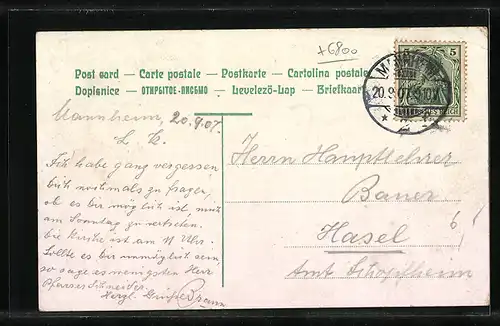 +6800
Post card — Carte postale — Postkarte — Cartolina postale
Dopisnice — ОТКРЫТОЕ-ПИСЬМО — Levelező-Lap — Briefkaart
5
20.9.07.
Mannheim, 20.9.07.
L. K.
Ich habe ganz vergessen
dich nochmals zu fragen,
ob es dir möglich ist, mich
am Sonntag zu vertreten.
Die Kirche ist am 11 Uhr.
Sollte es dir unmöglich sein,
so sage es wenigstens Herr
Pfarrer Schneider.
Herzl. Grüße Braun
Herrn Hauptlehrer
Bauer
Hasel
Amt Schopfheim